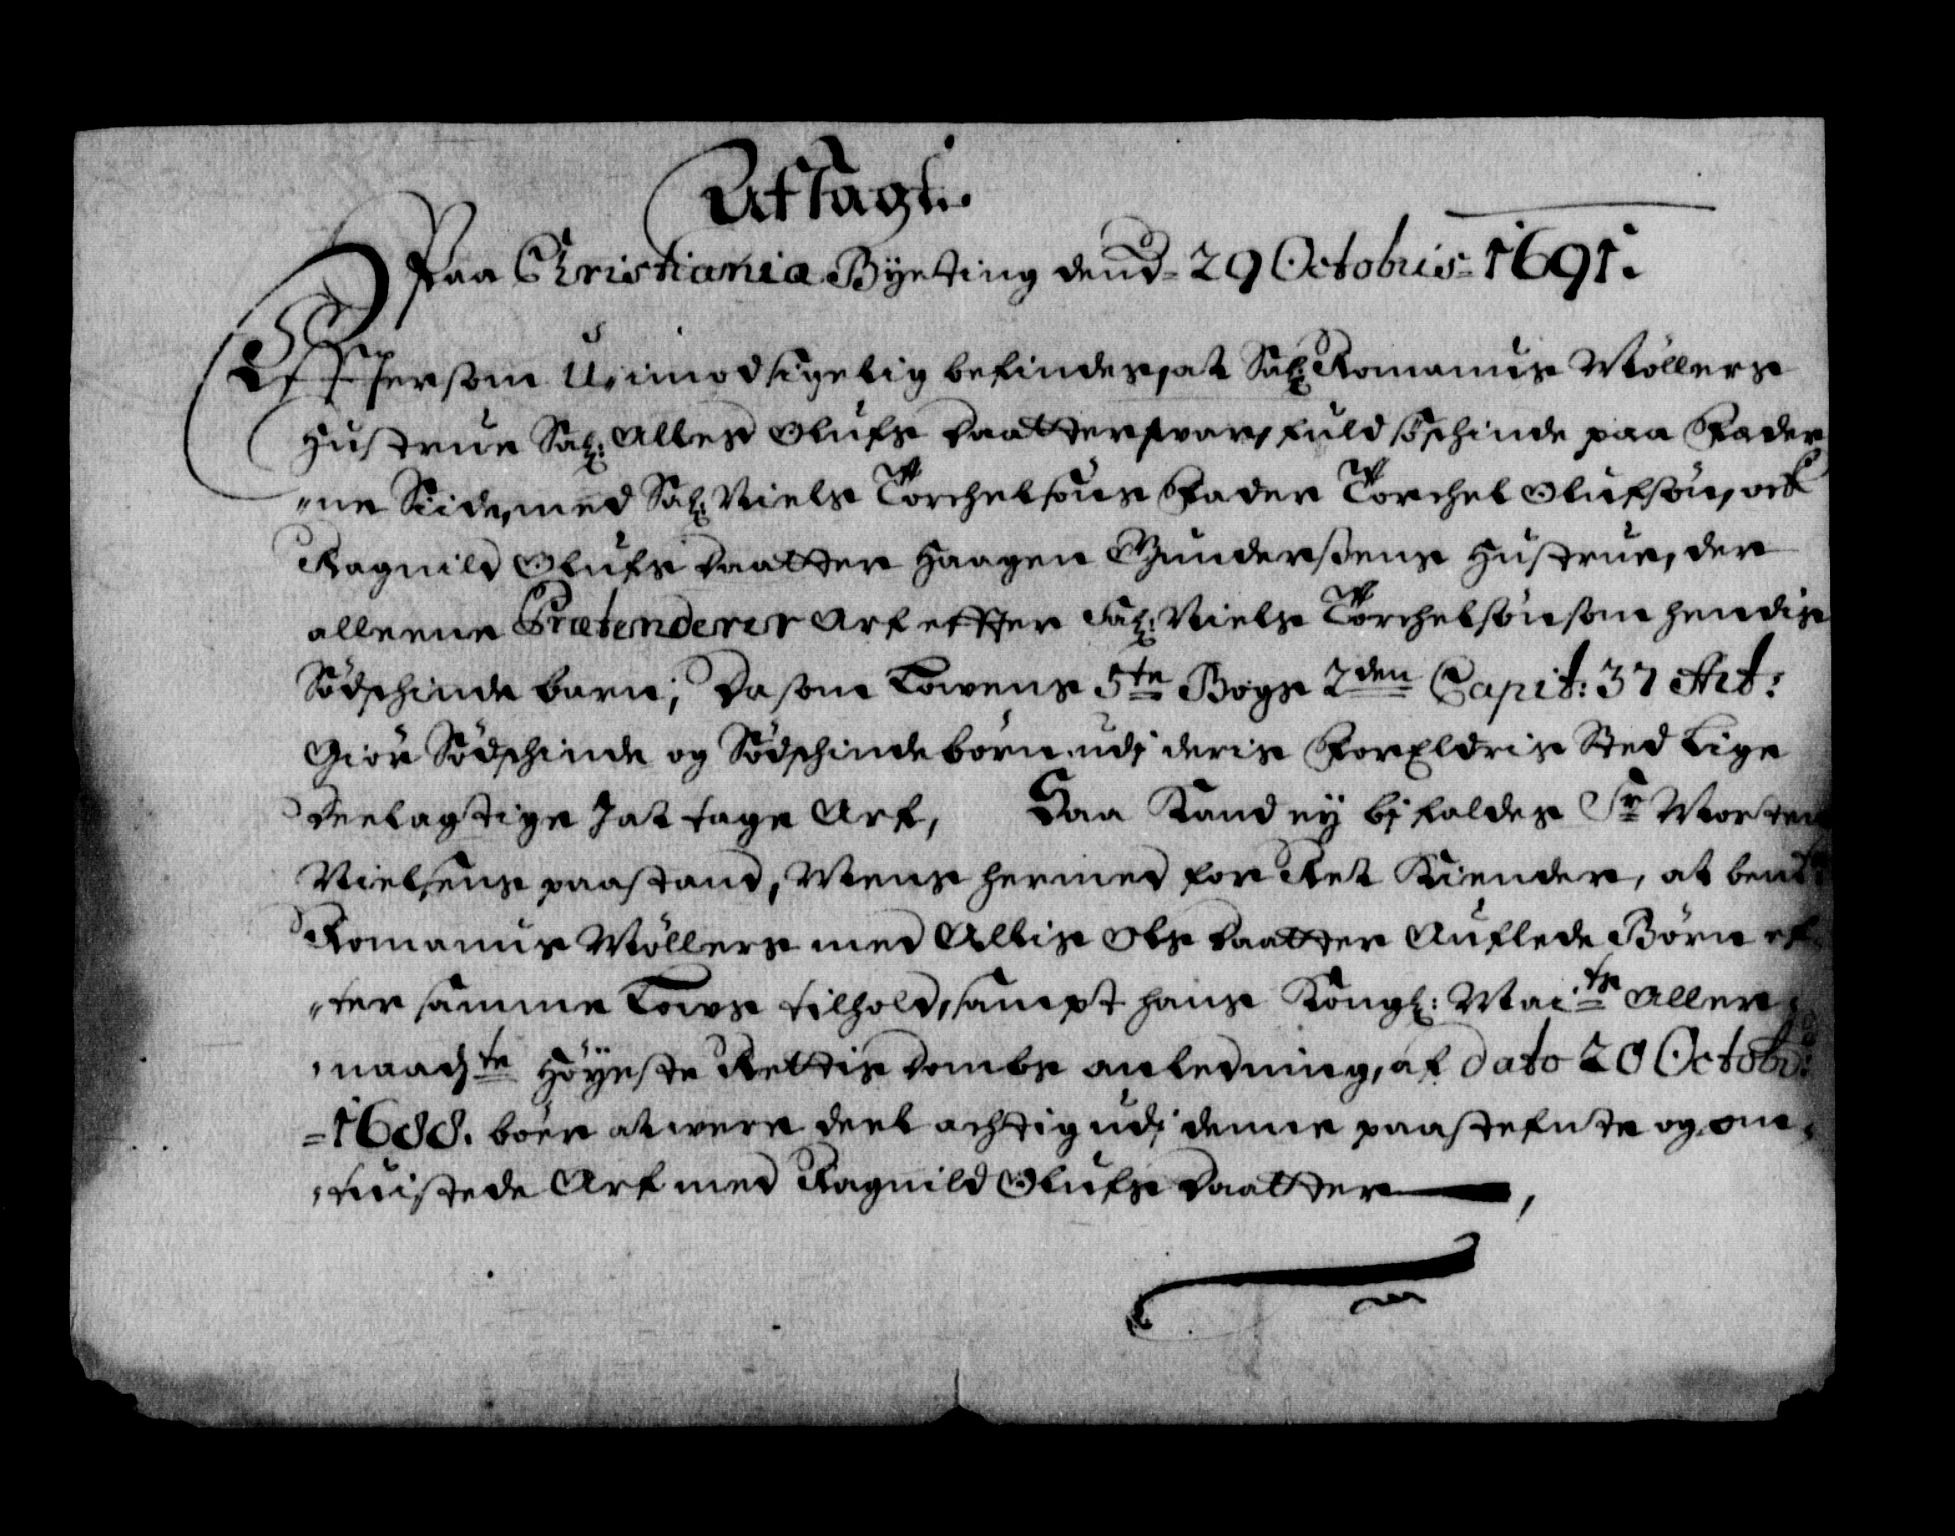 Afsagt.
Paa Christiania Byeting dend 29 Octobris 1691.
Efftersom Uimodsigelig befindes, at Sal: Romanus Möllers
Hustrue Sal: Alles Olufs daatter, var fuld söschinde paa Fader
"ne Siide, med Sal: Niels Törchelsöns Fader Törchel Olufsön, och
Ragnild Olufs daatter Haagen Gundersens Hustrue, der
alleene Prætenderer Arf effter Sal: Niels Törchelsön som hendis
Södschinde barn; Da som Lowens 5te Bogs 2den Capit: 37 Art:
Giör Södschinde og Södschindebörn udj deris Forældris Sted Lige
deelagtige J at tage Arf, Saa Kand ey bjfaldes Sr Morten
Nielsens paastand, Mens hermed for Ret Kiendere, at bemte
Romanus Möllers med Allis Ols daatter Auflede Börn ef
"ter samme Lows tilhold, sampt hans Kongl: Mai.ts Aller
naadste Höyeste Rettis dombs anledning, af dato 20 Octobr:
=1688. böer at were deelachtig udj denne paastefnte og om
tuistede Arf med Ragnild Olufs daatter